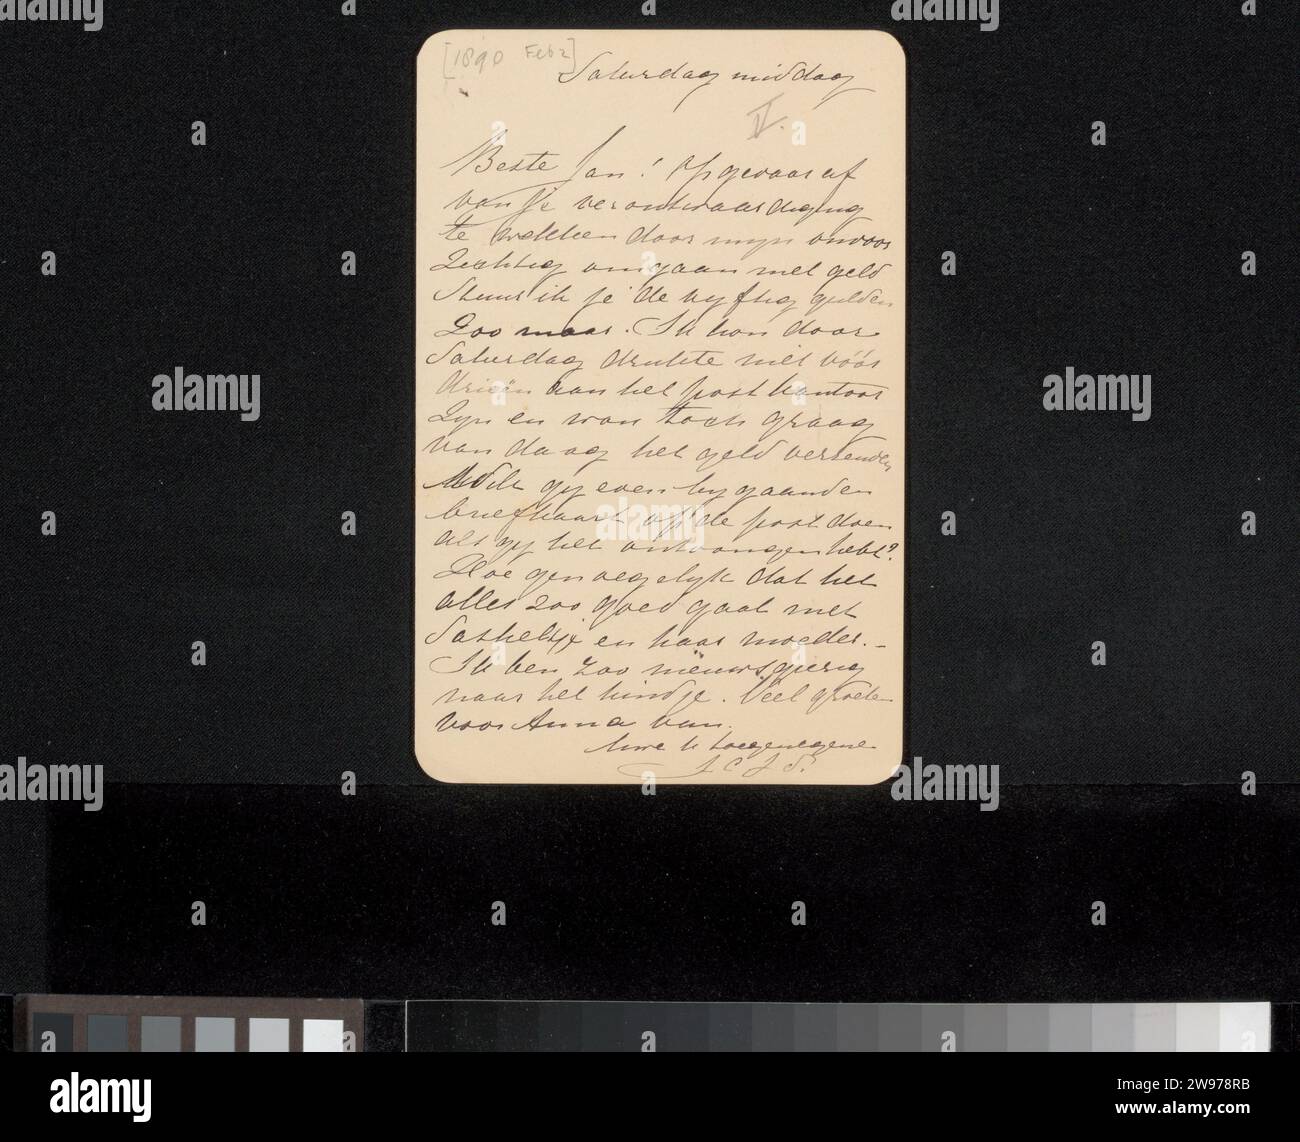 [1890 Feb 2]
Saturdag middag
V.
Beste Jan! Op gevaar af
van je verontwaardiging
te wekken door myn onvoor
zichtig omgaan met geld
stuur ik je de vyftig gulden
zoo maar. Ik kon door
Saturdag drukte niet vóór
drieën aan het post kantoor
zyn en won toch graag
van daag het geld verzenden
Wilt gy even bygaanden
briefkaart op de post doen
als gy het ontvangen hebt?
Hoe genoegelyk dat het
alles zoo goed gaat met
Saskeltje en haar moeder. -
Ik ben zoo nieuwsgierig
naar het kindje. Veel groeten
voor Anna van.
Uwe U toegenegene
J C J D.
a
alamy
alamy
a
alamy
a
alamy
Image ID: 2W978RB
www.alamy.com